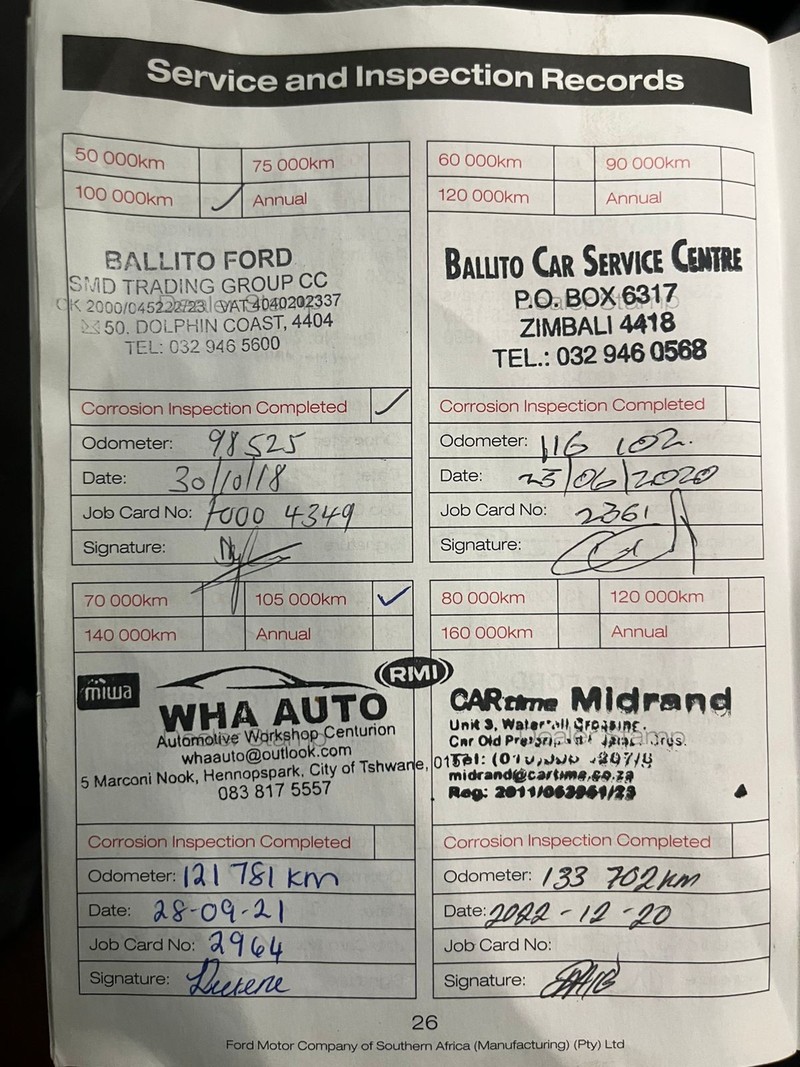 Service and Inspection Records
50 000km 75 000km
100 000km Annual
BALLITO FORD
SMD TRADING GROUP CC
CK 2000/045222/23 VAT 4040202337
50. DOLPHIN COAST, 4404
TEL: 032 946 5600
Corrosion Inspection Completed
Odometer: 98525
Date: 30/10/18
Job Card No: 7000 4349
Signature:
60 000km 90 000km
120 000km Annual
BALLITO CAR SERVICE CENTRE
P.O. BOX 6317
ZIMBALI 4418
TEL.: 032 946 0568
Corrosion Inspection Completed
Odometer: 116 102.
Date: 25/06/2020
Job Card No: 2361
Signature:
70 000km 105 000km
140 000km Annual
miwa RMI
WHA AUTO
Automotive Workshop Centurion
whaauto@outlook.com
5 Marconi Nook, Hennopspark, City of Tshwane,
083 817 5557
Corrosion Inspection Completed
Odometer: 121 781 km
Date: 28-09-21
Job Card No: 2964
Signature:
80 000km 120 000km
160 000km Annual
CARtime Midrand
Unit 3,
Cnr Old
Tel:
midrand@cartime.co.za
Reg: 2011/063961/23
Corrosion Inspection Completed
Odometer: 133 702km
Date: 2022-12-20
Job Card No:
Signature:
26
Ford Motor Company of Southern Africa (Manufacturing) (Pty) Ltd